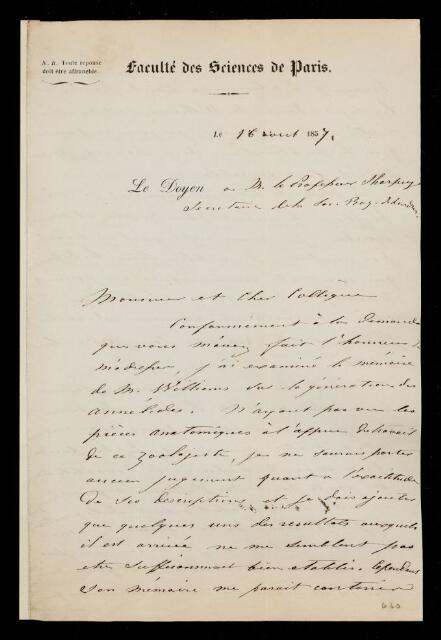 N. B. Toute réponse
doit être affranchie.
Faculté des Sciences de Paris.
Le 16 aout 1857,
Le Doyen a M. le Professeur Sharpey
Secretaire de la Soc. Roy. de Londres.
Monsieur et Cher Collègue
Conformément à la demande
que vous m'avez fait l'honneur de
m'adresser, j'ai examiné le mémoire
de M. Williams sur la génération des
annélides. N'ayant pas vu les
pièces anatomiques à l'appui du travail
de ce zoologiste, je ne saurais porter
aucun jugement quant à l'exactitude
de ses descriptions et je dois ajouter
que quelques uns des resultats auxquels
il est arrivé ne me semblent pas
etre suffisamment bien etablis. Cependant
son mémoire me parait contenir